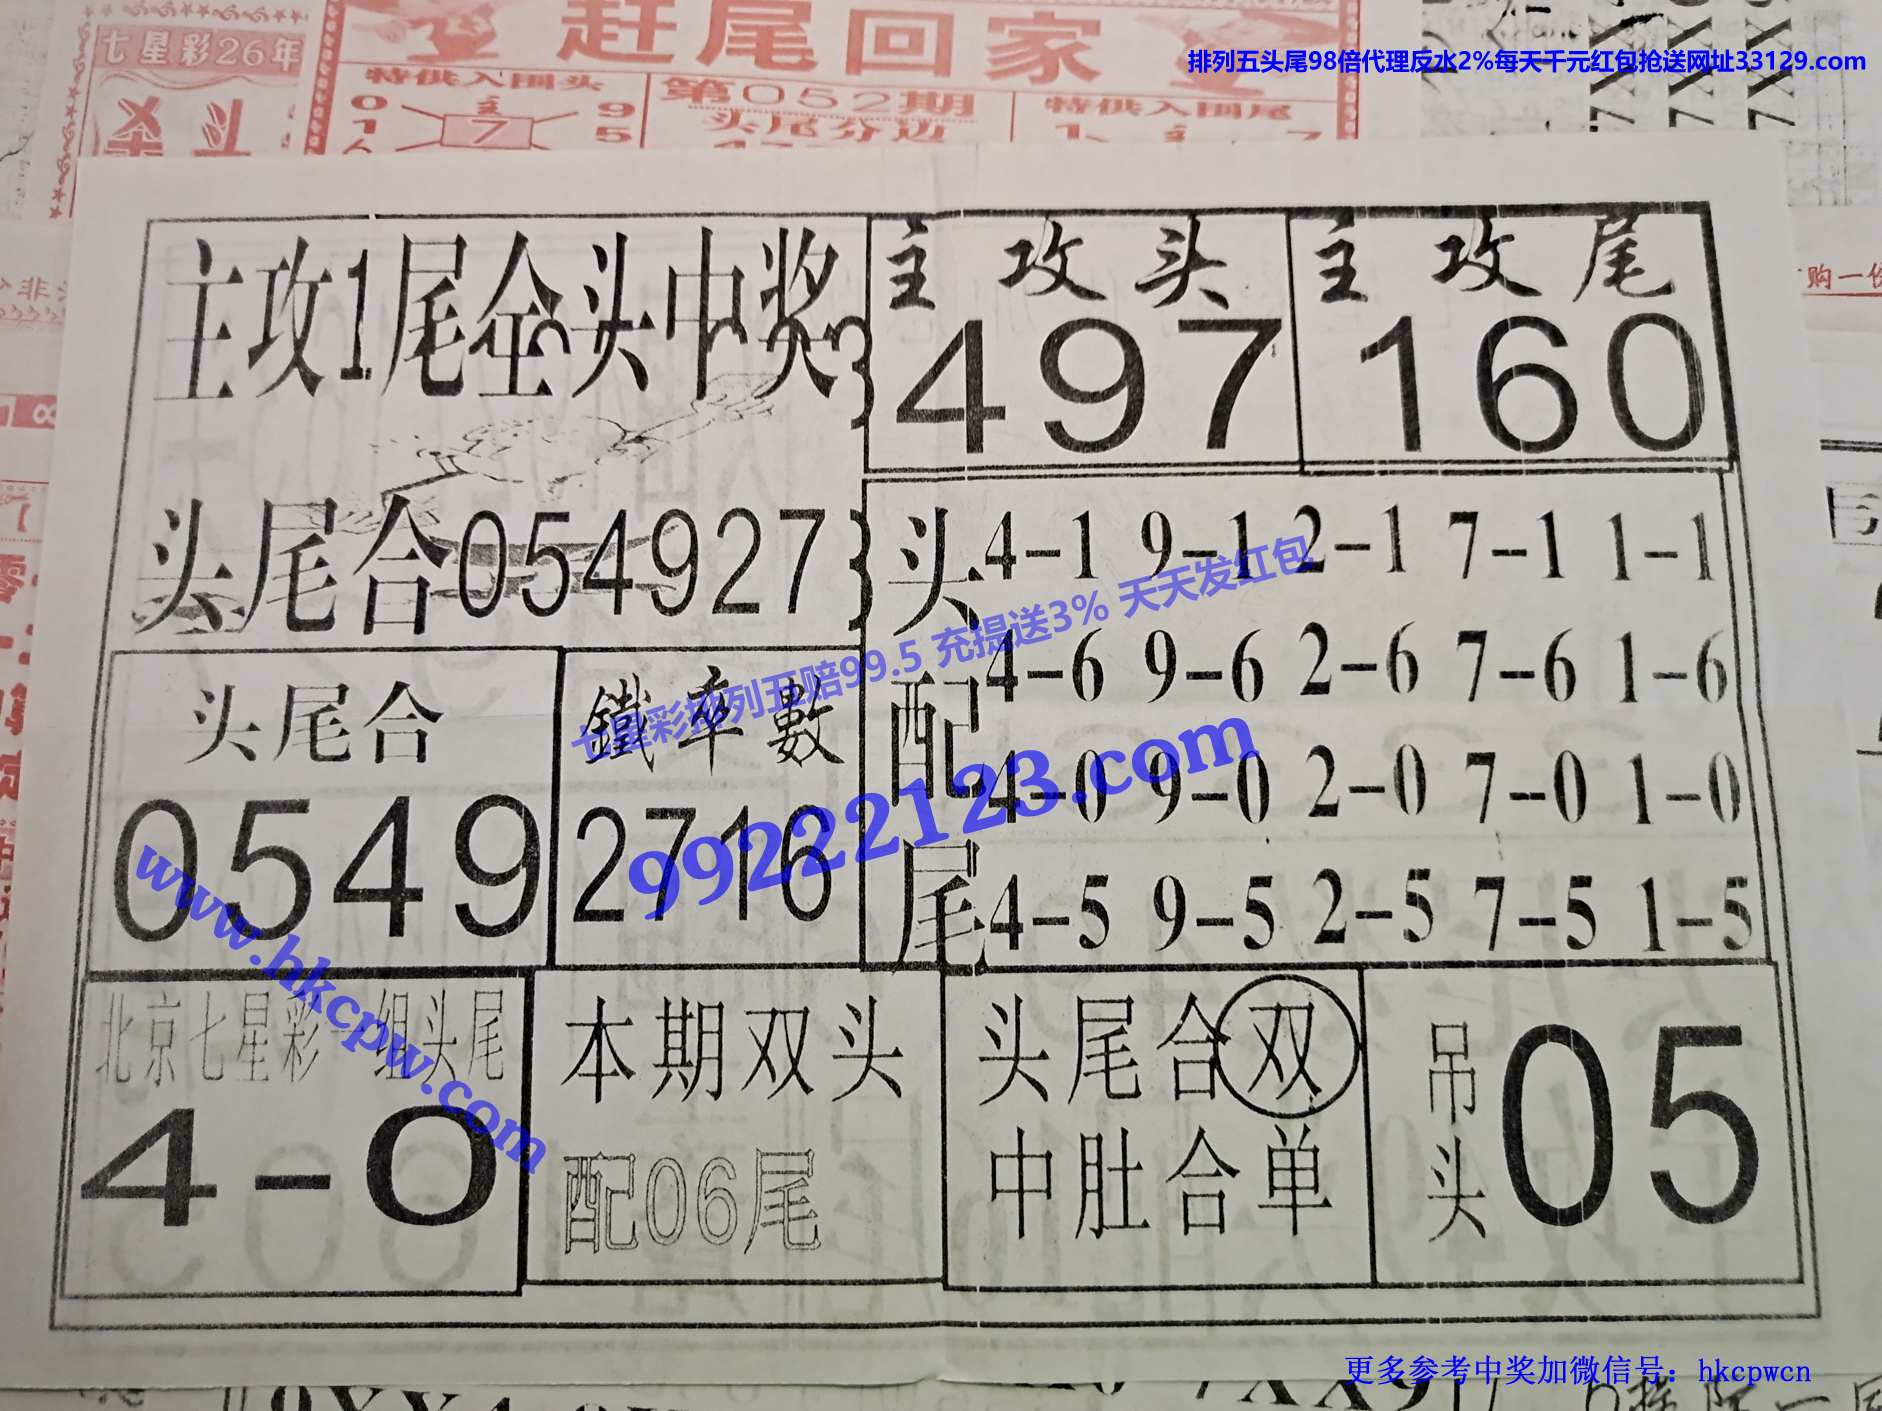 七星彩26年
赶尾回家
排列五头尾98倍代理反水2%每天千元红包抢送网址33129.com
特供入围头
第052期
特供入围尾
0 主 9
1 7 5
头尾分边
1 主 7
购一份
主攻1尾全头中奖
主攻头
497
主攻尾
160
头尾合054927
头配尾
4-1 9-1 2-1 7-1 1-1
4-6 9-6 2-6 7-6 1-6
4-0 9-0 2-0 7-0 1-0
4-5 9-5 2-5 7-5 1-5
七星彩排列五赔99.5 充提送3% 天天发红包
99222123.com
头尾合
0549
鐵率數
2716
www.hkcpw.com
北京七星彩一组头尾
4-0
本期双头
配06尾
头尾合双
中肚合单
吊头
05
更多参考中奖加微信号：hkcpwcn